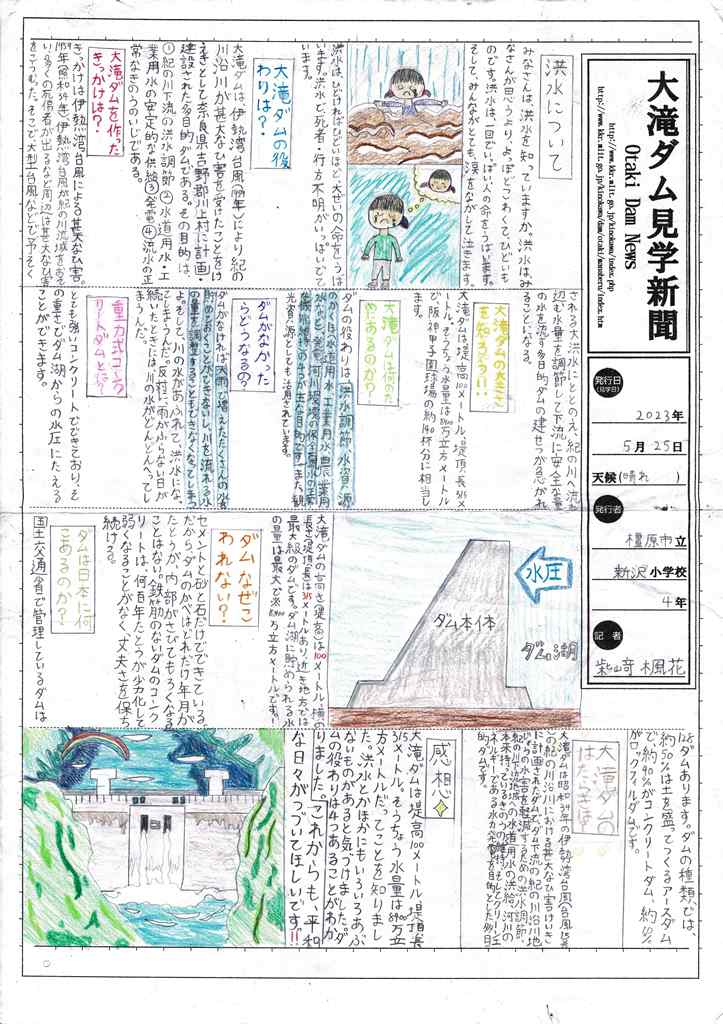 大滝ダム見学新聞
Otaki Dam News
http://www.kkr.mlit.go.jp/kinokawa/index.php
発行日
(見学日)
2023年
5月25日
天候(晴れ)
発行者
橿原市立
新沢小学校
4年
記者
柴﨑楓花
洪水について
みなさんは洪水を知っていますか。洪水はみ
なさんが思うより、よっぽどこわくて、ひどいも
のです。洪水は、一回でいっぱい人の命をうばいます。
そして、みんながとても、涙をながして泣きます。
洪水は、ひどければひどいほど、大ぜいの命をうば
います。洪水で死者・行方不明がいっぱいでて
います。
大滝ダムの役
わりは?
大滝ダムは、伊勢湾台風により紀の
川沿川が甚大なひ害を受けたことをけ
えきとして奈良県吉野郡川上村に計画・
建設された多目的ダムである。その目的は、
①紀の川下流の洪水調節②水道用水・工
業用水の安定的な供給③発電④流水の正
常なきのうのいじである。
大滝ダムを作った
きっかけは?
きっかけは伊勢湾台風による甚大なひ害。
1959年(昭和34年)伊勢湾台風が紀の川流域をおそ
い、多くの死傷者が出るなど周辺は甚大なひ害
をこうむった。そこで大型台風などで予そく
される大洪水にととのえ、紀の川へ流
込む水量を調節して下流に安全な量
の水を流す多目的ダムの建せつがる思がれ
ることになる。
大滝ダムの大きさ
を知ろう!!
大滝ダムは堤高100メートル、堤頂長315メ
ートル。そうちょう水量は8400万立方メートル
で阪神甲子園球場の約140杯分に相当し
ます。
大滝ダムは何のた
めにあるのか?
ダムの役わりは「洪水調節、水資源
のかくほ(水道用水、工業用水、農業用
水など)、発電、河川環境の保全(流水の正常
な機能維持)の4つが主な目的です。また、観
光資源としても活用されています。
ダムがなかった
らどうなるの?
ダムがなければ大雨で増えたたくさんの水を
貯めおくことができないし、川を流れる水
の量を調整することもできなくなってしまう
よ。そして、川の水があふれて、洪水にな
てしまうんだ。反対に、雨がふらない日が
続いたときには、川の水がどんどんへってし
まうんだ。
重力式コンク
リートダムとは?
とても強いコンクリートでできており、そ
の重さでダム湖からの水圧にたえる
ことができます。
水圧
ダム本体
ダム湖
大滝ダムの高さ(堤高)は100メートル、横の
長さ(堤頂長)は315メートルあり、近き地方では
最大級のダムです。ダム湖に貯められる水
の量は最大で8400万立方メートルです!
ダムなぜこ
われない?
セメントと砂と石だけでできている。
だからダムのかべはどれだけ年月が
たとうが、内部がさびてもろくなる
ことはない。鉄筋のないダムのコンク
リートは、何百年たとうが少力化して
弱くなることがなく、丈夫さを保ち
続ける。
ダムは日本に何
こあるのか?
国土交通省で管理しているダムは
128ダムあります。ダムの種類では、
約50%は土を盛ってつくるアースダム
で、約40%がコンクリートダム、約10%
がロックフィルダムです。
大滝ダムの
はたらきは
大滝ダムは昭和34年の伊勢湾台風(台風15号)
の紀の川沿川における甚大なひ害をけいき
に計画されたダムで、ダム下流の紀の川沿川地
いきの水害を軽減するための洪水調節、
紀の川下流地域への水道用水の供給、河川の
本来持っているきのうの維持、そしてクリーンエ
ネルギーである水力発電を目的とした多目
的ダムです。
感想
大滝ダムは堤高100メートル、堤頂長
315メートル、そうちょう水量は8400万立
方メートルだってことを知りまし
た。洪水とかほかにもいろいろあぶ
ないものがあると気づけました。ダ
ムの役わりは4つあることがわか
りました。「これからも、平和
な日々がつづいてほしいです!!